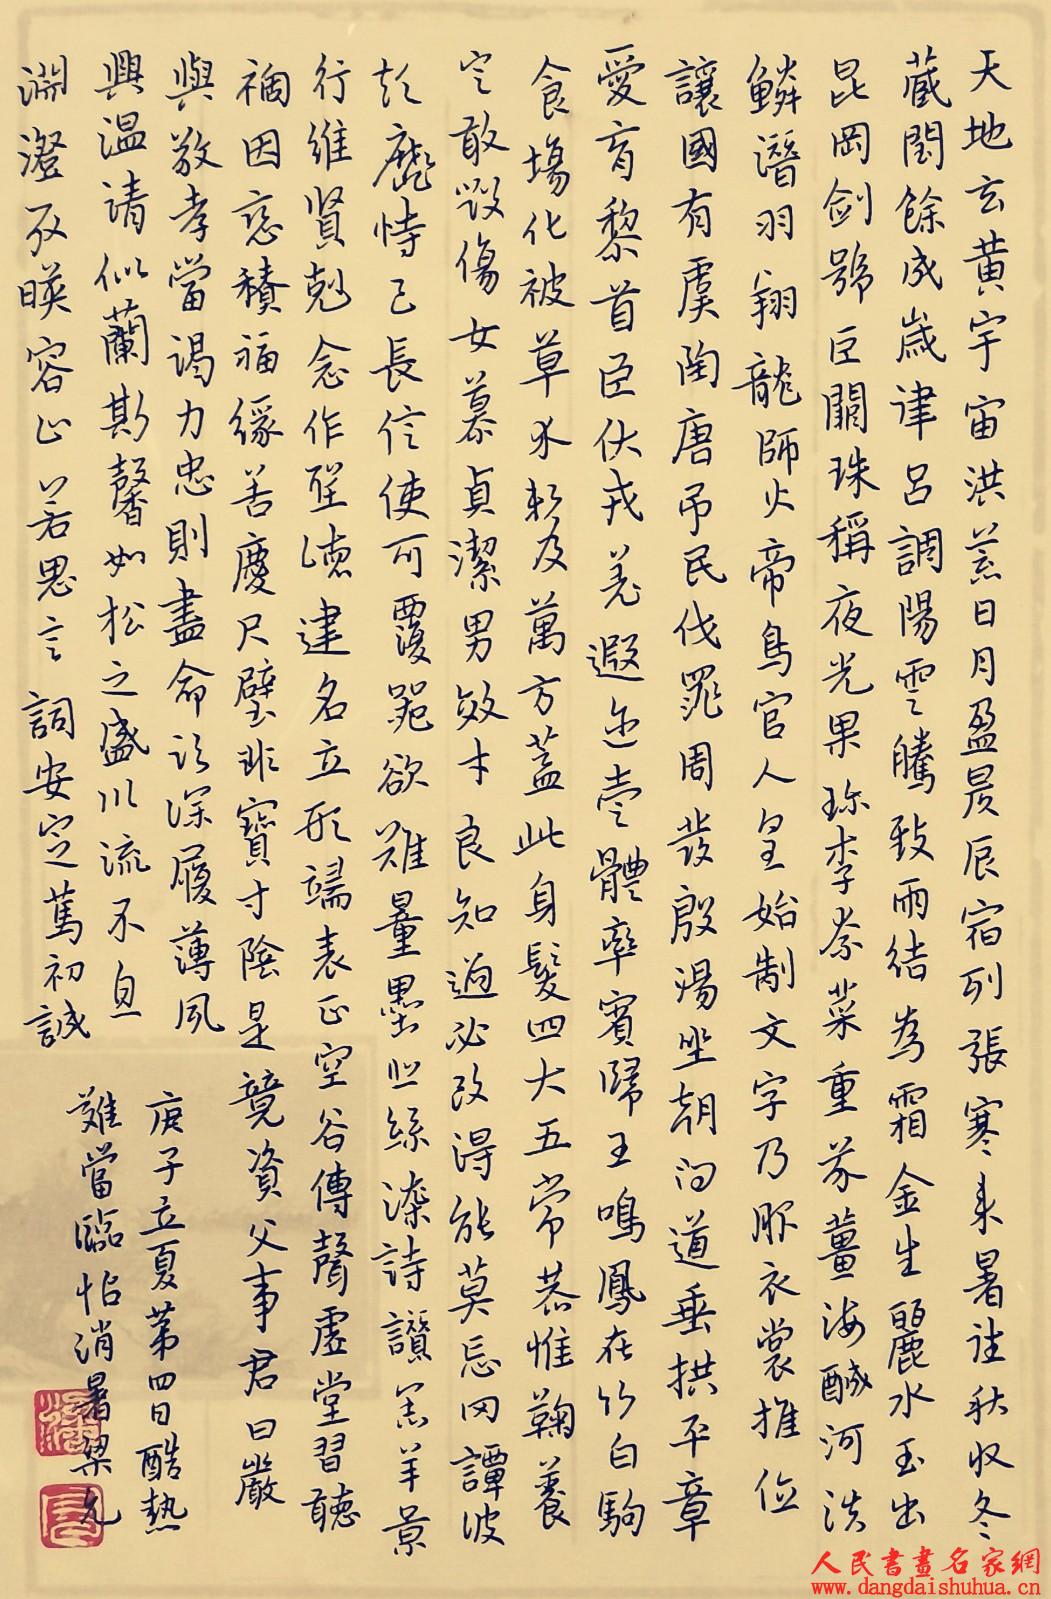 天地玄黃宇宙洪荒日月盈昃辰宿列張寒來暑往秋收冬
藏閏餘成歲律呂調陽雲騰致雨結為霜金生麗水玉出
昆岡劍號巨闕珠稱夜光果珍李柰菜重芥薑海鹹河淡
鱗潛羽翔龍師火帝鳥官人皇始制文字乃服衣裳推位
讓國有虞陶唐弔民伐罪周發殷湯坐朝問道垂拱平章
愛育黎首臣伏戎羌遐迩壹體率賓歸王鳴鳳在竹白駒
食場化被草木賴及萬方蓋此身髮四大五常恭惟鞠養
豈敢毀傷女慕貞潔男效才良知過必改得能莫忘罔譚彼
短靡恃己長信使可覆器欲難量墨悲絲染詩讚羔羊景
行維賢剋念作聖德建名立形端表正空谷傳聲虛堂習聽
禍因惡積福緣善慶尺璧非寶寸陰是競資父事君曰嚴
與敬孝當竭力忠則盡命臨深履薄夙
興溫清似蘭斯馨如松之盛川流不息
淵澄取暎容止若思言詞安定篤初誠
庚子立夏第四日酷熱
難當臨帖消暑梁允
人民書畫名家網
www.dangdaishuhua.cn